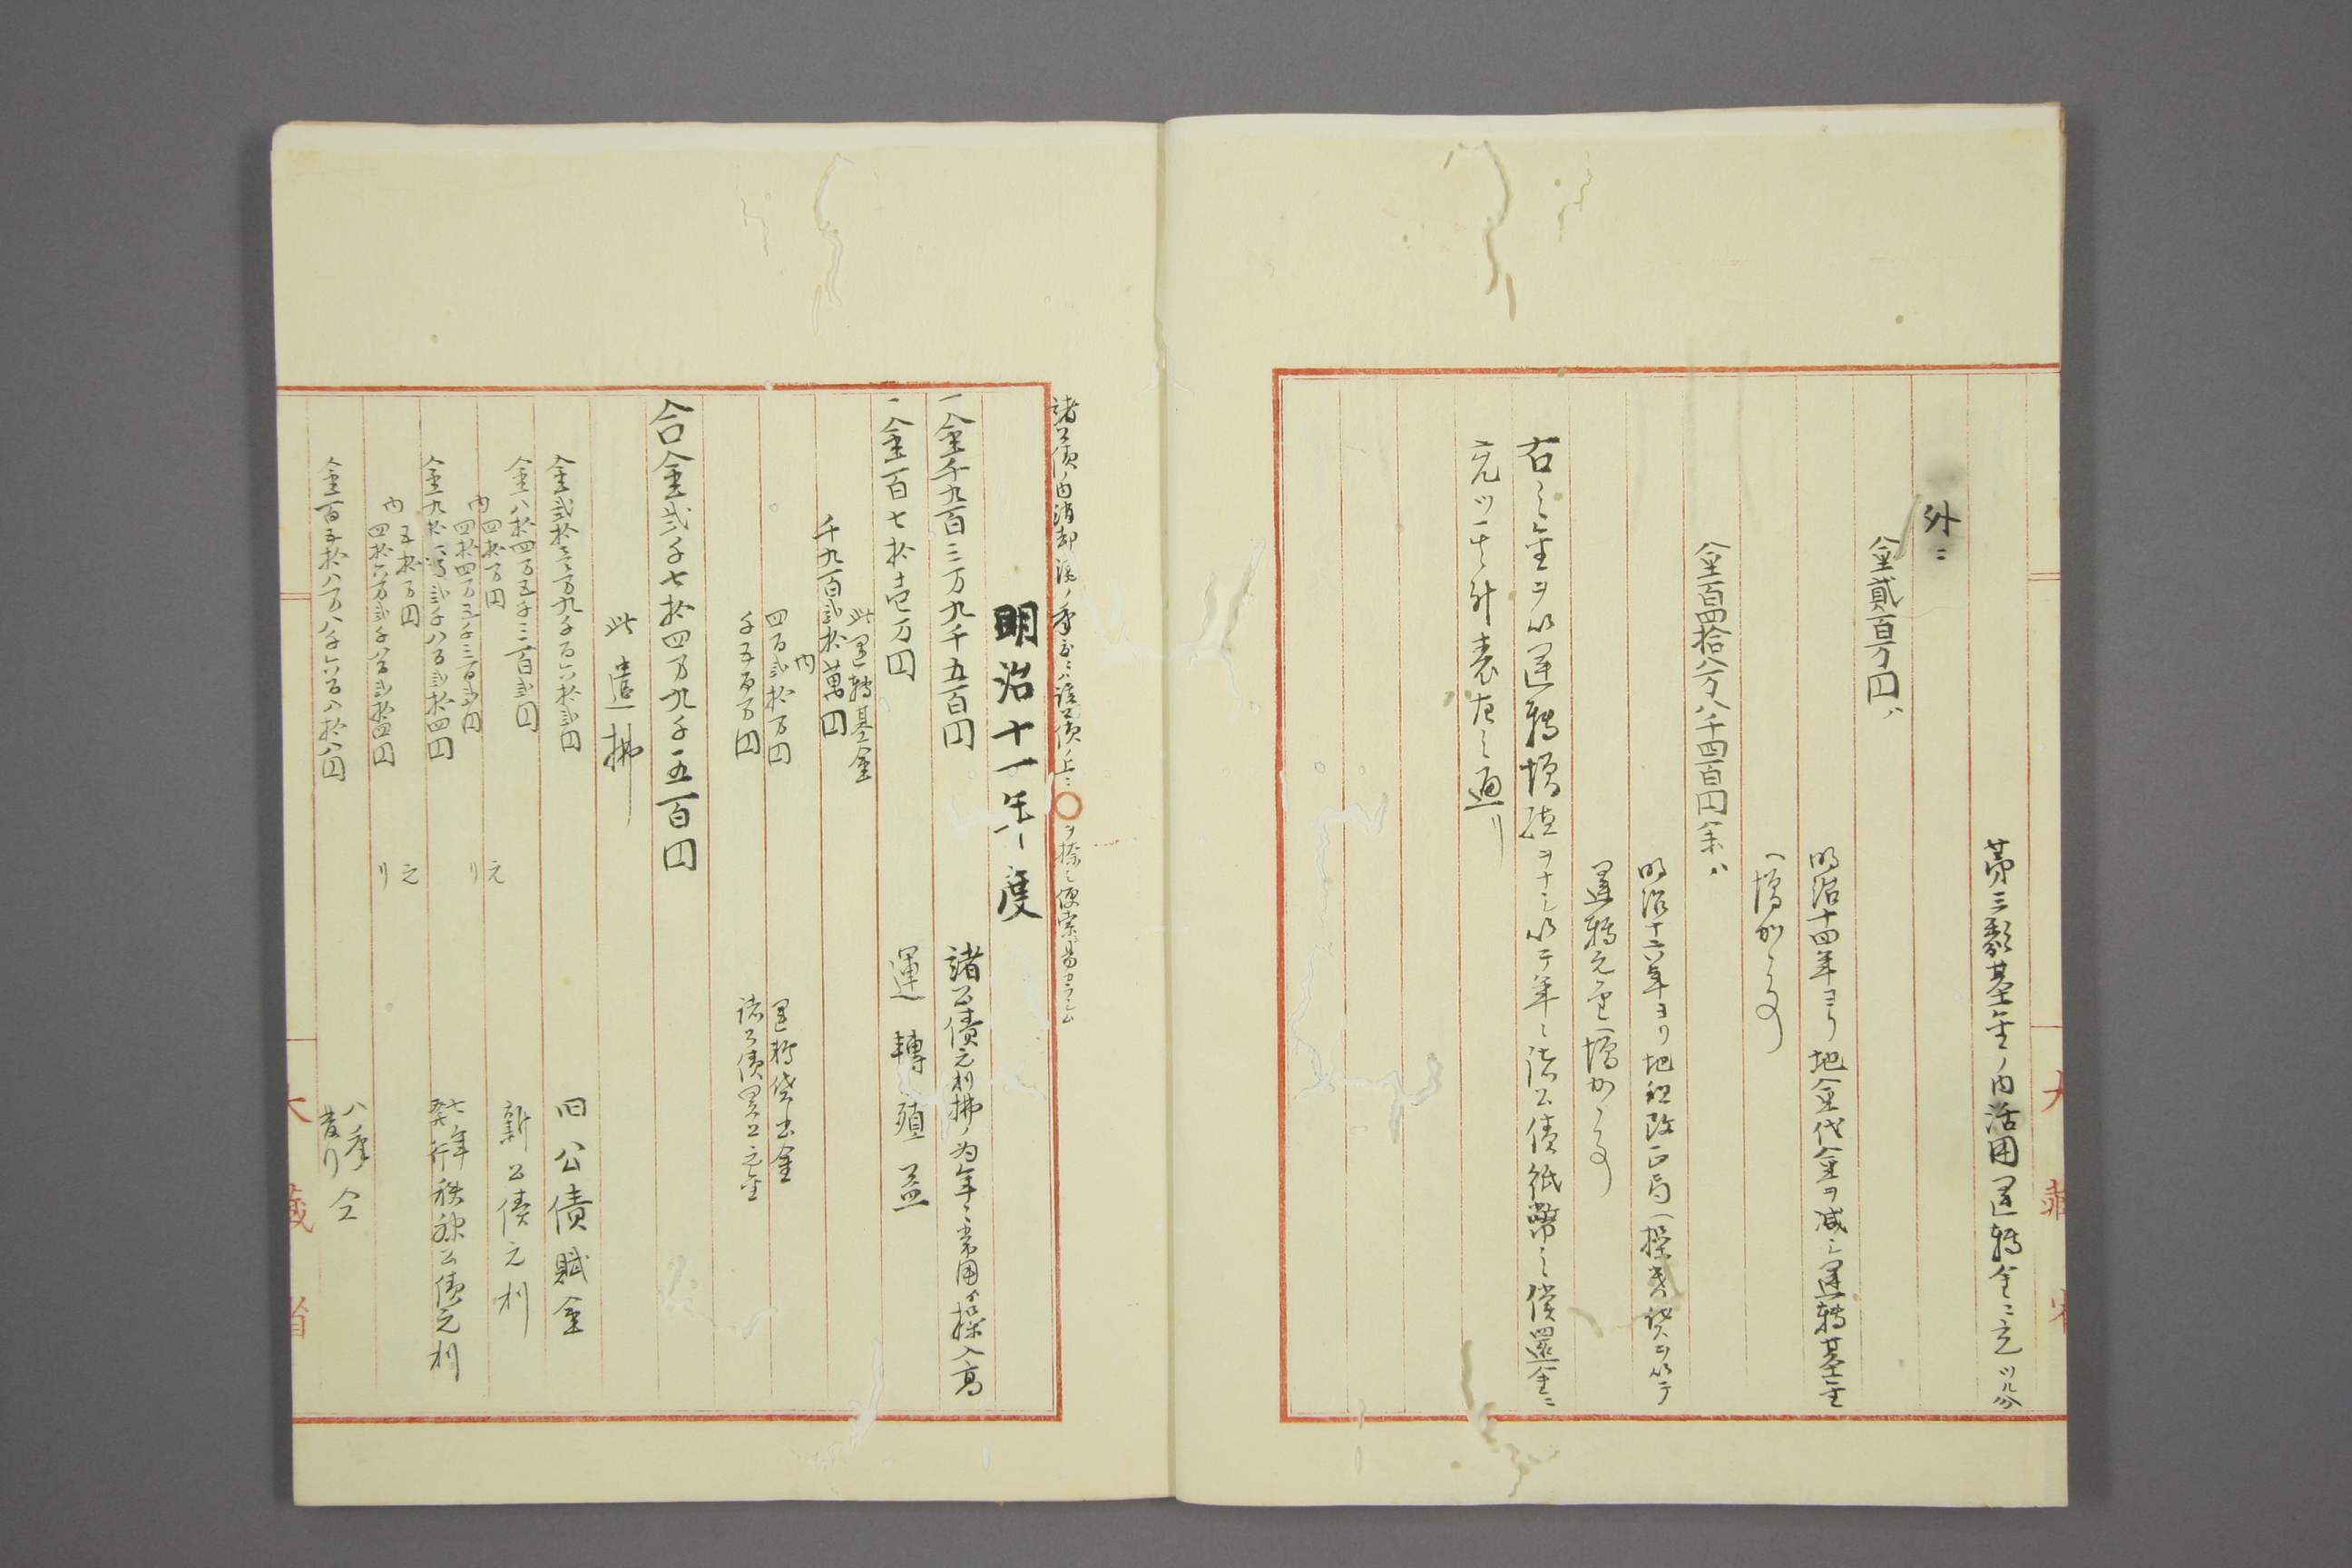 第三類基金ノ内活用運轉金ニ充ツル分
外ニ
金貳百万円ハ
明治十四年ヨリ地金代金ヲ減シ運轉基金
ヘ増加ノ
金百四拾八万八千四百円余ハ
明治十六年ヨリ地租改正局ヘ操替貸ヲ以テ
運轉元金ヘ増加ノ
右之金ヲ以運轉増殖ヲナシ以テ年々諸公債紙幣之償還金ニ
充ツ其計表左之通リ
大藏省
諸公債ノ内消却済ノ年度ニハ該公債ノ上ニ〇ヲ捺シ便索易カラシム
明治十一年度
一金千九百三万九千五百円
諸公債元利拂ノ為年々常用ヨリ操入高
一金百七拾壱万円
運轉殖益
此運轉基金
千九百弐拾萬円
内
四百弐拾万円
運轉貸出金
千五百万円
諸公債買上元金
合金弐千七拾四万九千五百円
此遣拂
金弐拾三万九千百六拾弐円
旧公債賦金
金八拾四万五千三百弐円
新公債元利
内
四拾万円
元
四拾四万五千三百弐円
利
金九拾六万弐千八百弐拾四円
七年発行秩禄公債元利
内
五拾万円
元
四拾六万弐千八百弐拾四円
利
金百五拾八万八千六百八拾八円
八年発行仝
大藏省